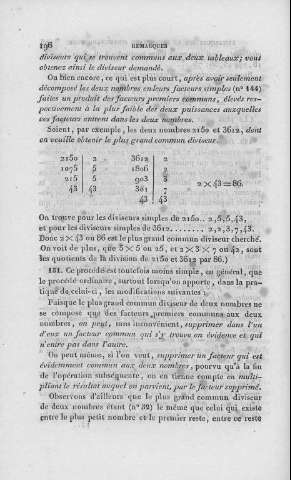 198 REMARQUES
diviseurs qui se trouvent communs aux deux tableaux; vous
obtenez ainsi le diviseur demandé.
On bien encore, ce qui est plus court, après avoir seulement
décomposé les deux nombres en leurs facteurs simples (n° 144)
faites un produit des facteurs premiers communs, élevés res-
pectivement à la plus faible des deux puissances auxquelles
ces facteurs entrent dans les deux nombres.
Soient, par exemple, les deux nombres 2150 et 3612, dont
on veuille obtenir le plus grand commun diviseur.
2150 | 2 3612 | 2
1075 | 5 1806 | 2
215 | 5 903 | 3 2 × 43 = 86.
43 | 43 301 | 7
43 | 43
On trouve pour les diviseurs simples de 2150.. 2,5,5,43,
et pour les diviseurs simples de 3612........ 2,2,3,7,43.
Donc 2 × 43 ou 86 est le plus grand commun diviseur cherché.
On voit de plus, que 5 × 5 ou 25, et 2 × 3 × 7 ou 42, sont
les quotients de la division de 2150 et 3612 par 86.)
181. Ce procédé est toutefois moins simple, en général, que
le procédé ordinaire, surtout lorsqu'on apporte, dans la pra-
tique de celui-ci, les modifications suivantes :
Puisque le plus grand commun diviseur de deux nombres ne
se compose que des facteurs premiers communs aux deux
nombres, on peut, sans inconvénient, supprimer dans l'un
d'eux un facteur commun qui s'y trouve en évidence et qui
n'entre pas dans l'autre.
On peut même, si l'on veut, supprimer un facteur qui est
évidemment commun aux deux nombres, pourvu qu'à la fin
de l'opération subséquente, on en tienne compte en multi-
pliant le résultat auquel on parvient, par le facteur supprimé.
Observons d'ailleurs que le plus grand commun diviseur
de deux nombres étant (n° 32) le même que celui qui existe
entre le plus petit nombre et le premier reste, entre ce reste